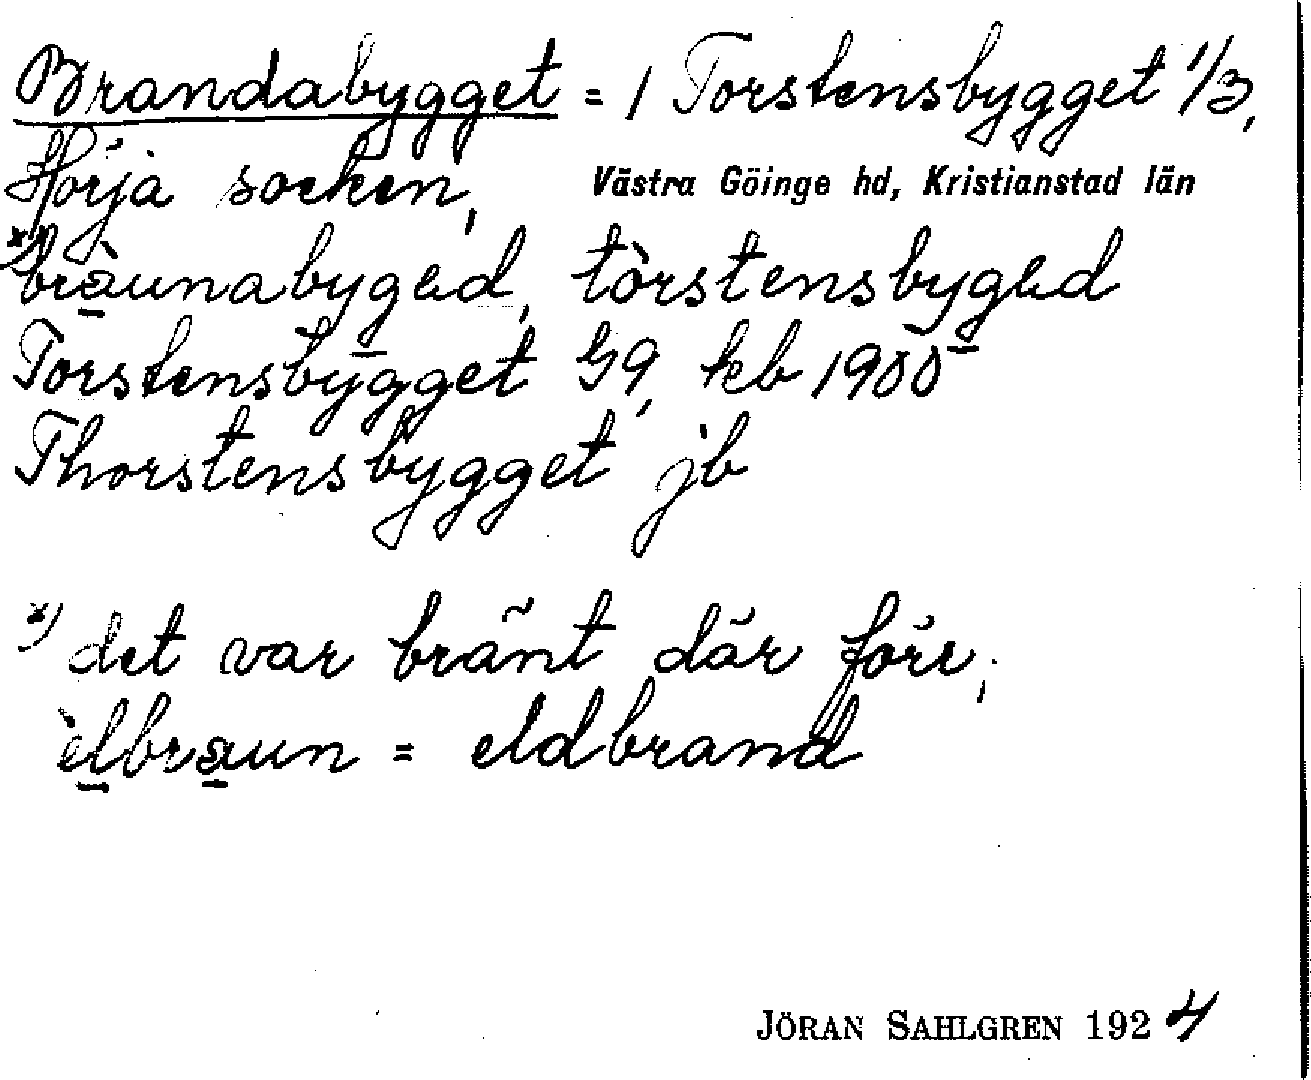 Brandabygget = 1 Torstensbygget 1/3,
Hörja socken, Västra Göinge hd, Kristianstad län
x) bràunabygəd, tòrstensbygəd
Torstensbygget G9, kb 1900
Thorstensbygget jb
x) det var bränt där före;
èlbraun = eldbrand
JÖRAN SAHLGREN 1924